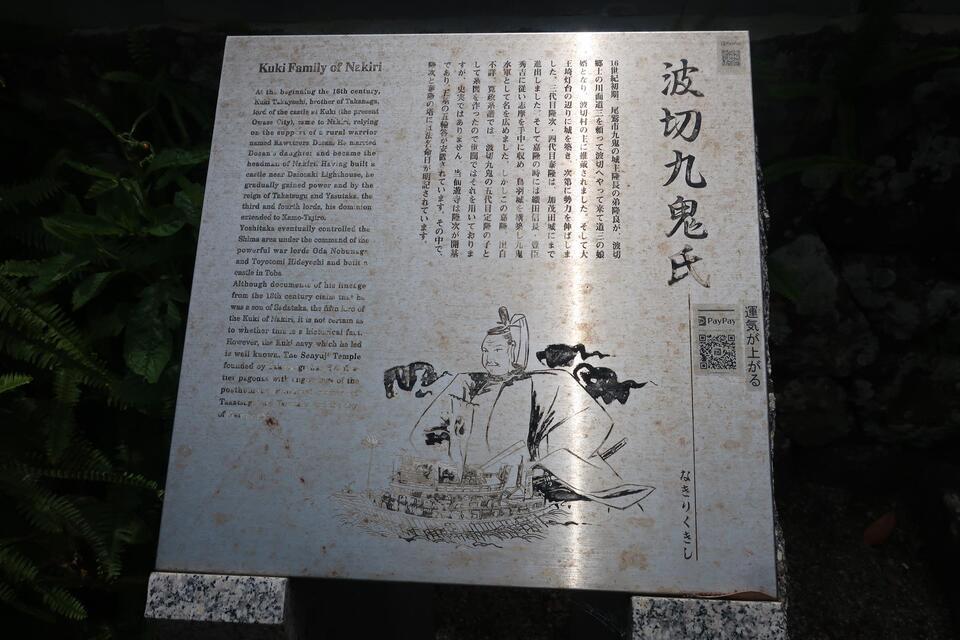 波切九鬼氏
なきりくきし
16世紀初期、尾鷲市九鬼の城主隆長の弟隆良が、波切
郷士の川面道三を頼って波切へやって来て道三の娘
婿となり、波切村の主に推戴されました。そして大
王埼灯台の辺りに城を築き、次第に勢力を伸ばしま
した。三代目隆次・四代目泰隆は、加茂田城にまで
進出しました。そして嘉隆の時には織田信長・豊臣
秀吉に従い志摩を手中に収め、鳥羽城を構築し九鬼
水軍として名を広めました。しかしこの嘉隆、出自
不詳。寛政系譜では、波切九鬼の五代目定隆の子と
して系図を作ったので世間ではそれを用いておりま
すが、史実ではありません。当仙遊寺は隆次が開基
であり、五基の五輪塔が安置されています。その中で、
隆次と泰隆の塔には法名命日が明記されています。
Kuki Family of Nakiri
At the beginning the 16th century,
Kuki Takayoshi, brother of Takanaga,
lord of the castle at Kuki (the present
Owase City), came to Nakiri, relying
on the support of a rural warrior
named Kawazura Dosan. He married
Dosan's daughter and became the
headman of Nakiri. Having built a
castle near Daiozaki Lighthouse, he
gradually gained power and by the
reign of Takatsugu and Yasutaka, the
third and fourth lords, his dominion
extended to Kamo-Tajiro.
Yoshitaka eventually controlled the
Shima area under the command of the
powerful war lords Oda Nobunaga
and Toyotomi Hideyoshi and built a
castle in Toba.
Although documents of his lineage
from the 18th century claims that he
was a son of Sadataka, the fifth lord of
the Kuki of Nakiri, it is not certain as
to whether this is a historical fact.
However, the Kuki navy which he led
is well known. The Senyuji Temple
founded by
tier pagodas with engravings of the
posthumous
Takatsugu
of
PayPay
運気が上がる
PayPay